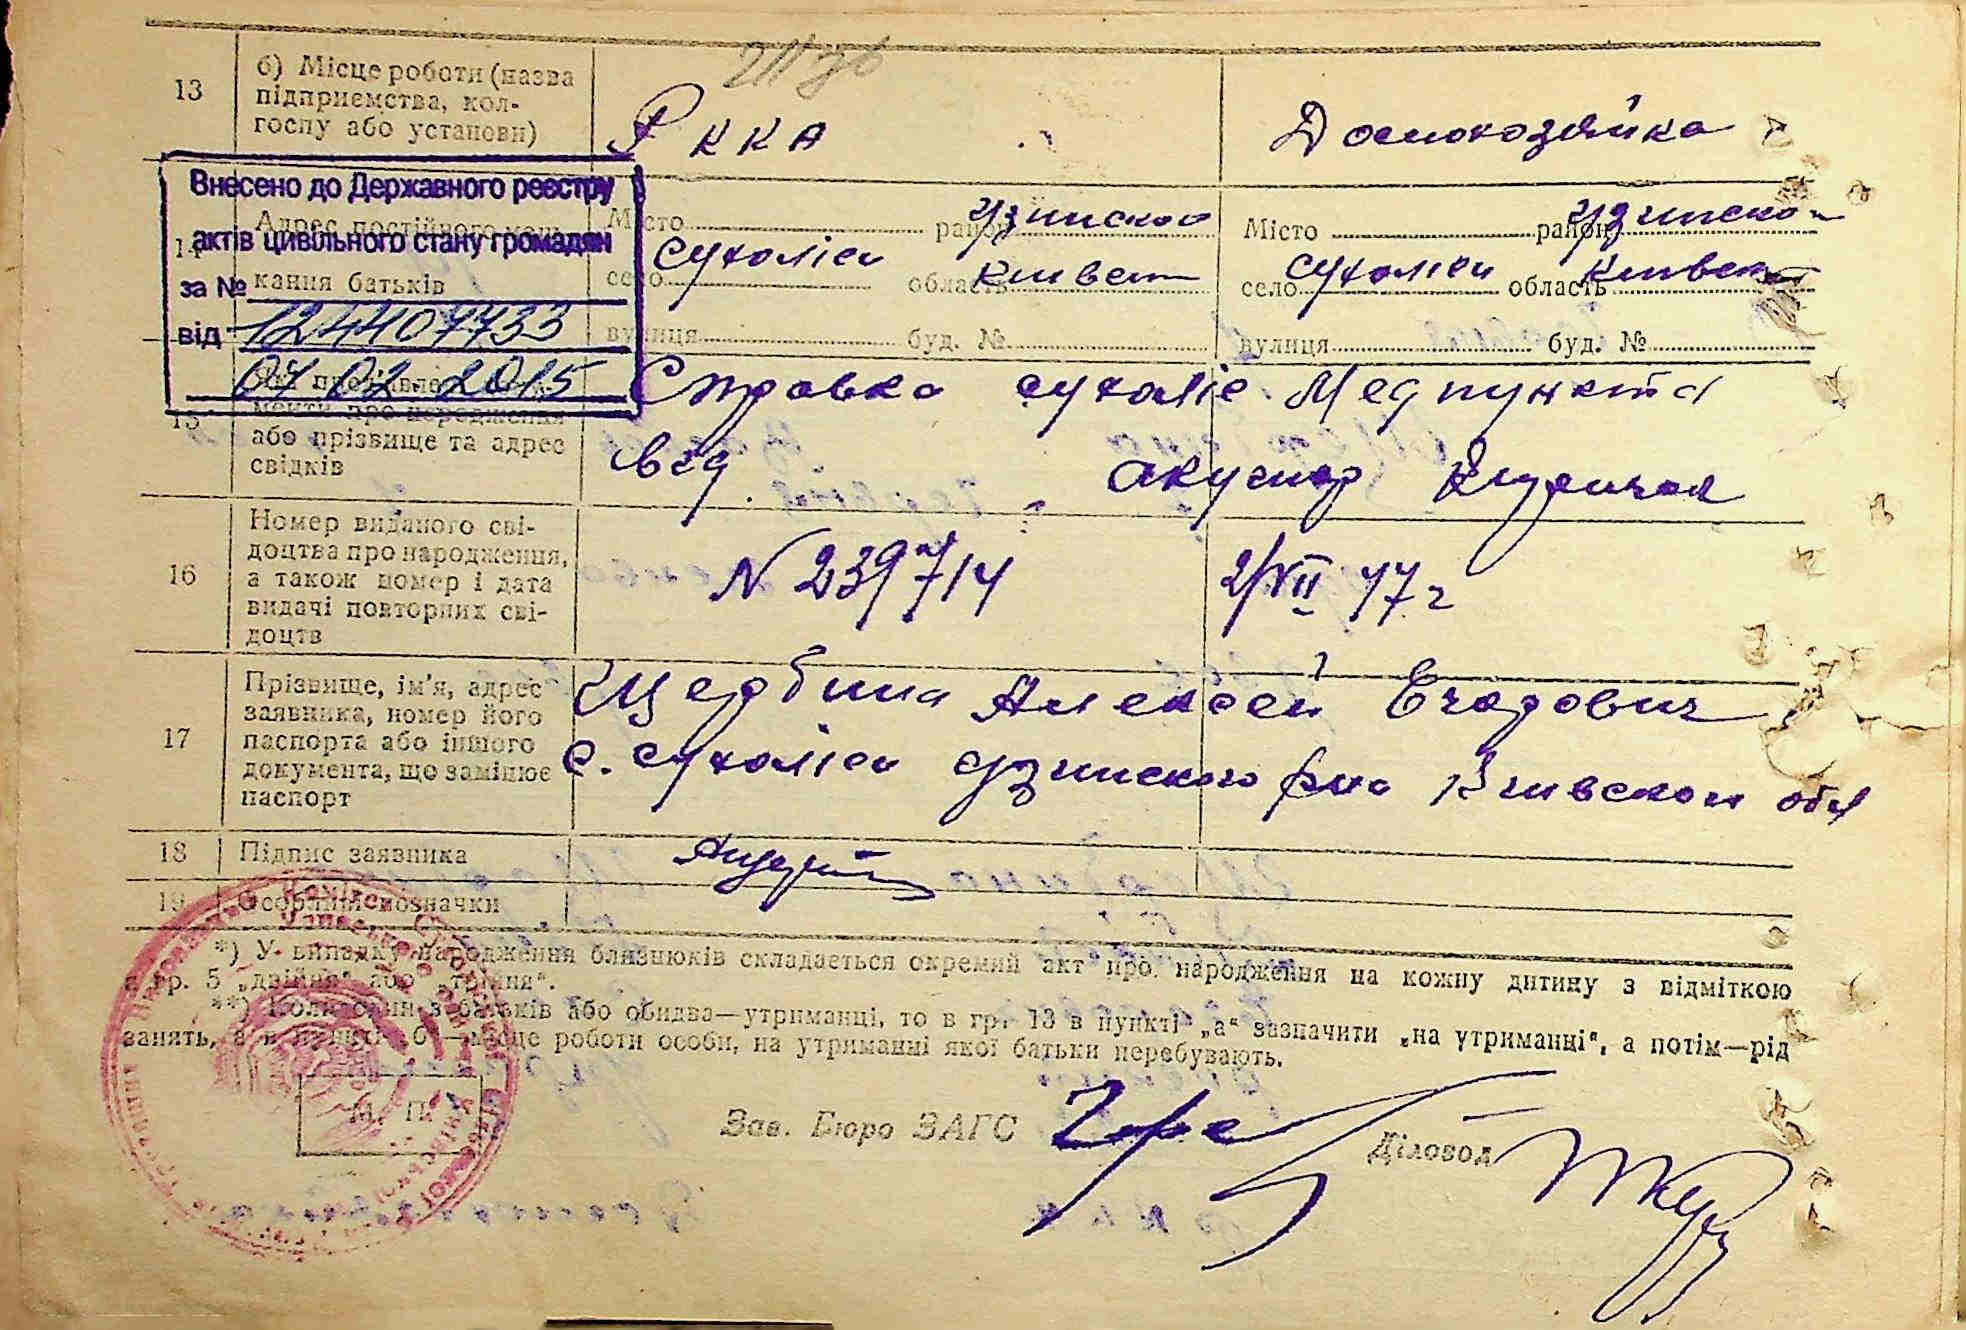 13
б) Місце роботи (назва
підприємства, кол-
госпу або установи)
РККА
Домохозяйка
Внесено до Державного реєстру
актів цивільного стану громадян
за №
від 124407733
07 02. 2015
14
Адрес постійного
кання батьків
Місто район Узинской
село Сухоліси область Киевск
вулиця буд. №
Місто район Узинской
село Сухоліси область Киевск
вулиця буд. №
15
менти про народження
або прізвище та адрес
свідків
Справка Сухоліс Медпункта
акушор
16
Номер виданого сві-
доцтва про народження,
а також номер і дата
видачі повторних сві-
доцтв
N 239714
2/VII 47 г
17
Прізвище, ім'я, адрес
заявника, номер його
паспорта або іншого
документа, що замінює
паспорт
Щербина Алексей Егорович
с. Сухоліси Узинского р-на Киевской обл
18
Підпис заявника
19
Особливі позначки
*) У випадку народження близнюків складається окремий акт про народження на кожну дитину з відміткою
в гр. 5 „двійня" або „трійня".
**) Коли один з батьків або обидва—утриманці, то в гр. 13 в пункті „а" зазначити „на утриманні", а потім—рід
занять, а в пункті „б"—місце роботи особи, на утриманні якої батьки перебувають.
М. П.
Зав. Бюро ЗАГС
Діловод